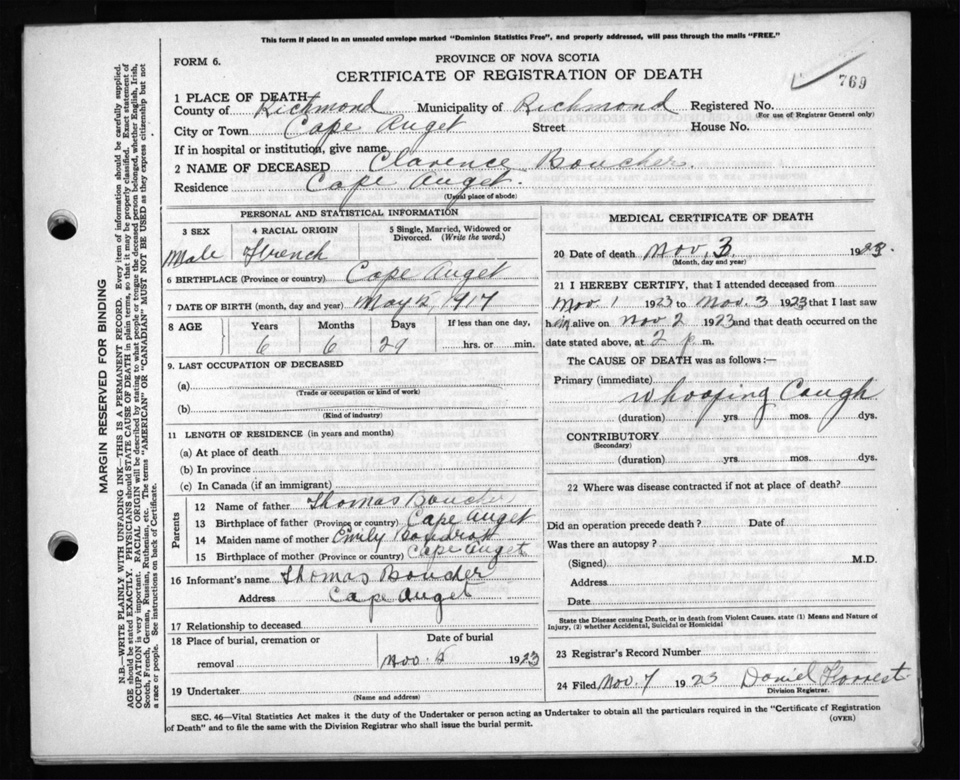 This form if placed in an unsealed envelope marked "Dominion Statistics Free", and properly addressed, will pass through the mails "FREE."
FORM 6.
PROVINCE OF NOVA SCOTIA
CERTIFICATE OF REGISTRATION OF DEATH
769
1 PLACE OF DEATH
County of Richmond Municipality of Richmond Registered No.
(For use of Registrar General only)
City or Town Cape Auget Street House No.
If in hospital or institution, give name
2 NAME OF DECEASED Clarence Boucher
Residence Cape Auget.
(Usual place of abode)
PERSONAL AND STATISTICAL INFORMATION
3 SEX 4 RACIAL ORIGIN 5 Single, Married, Widowed or Divorced. (Write the word.)
Male French
6 BIRTHPLACE (Province or country) Cape Auget
7 DATE OF BIRTH (month, day and year) May 5, 1917
8 AGE Years Months Days If less than one day,
6 6 29 hrs. or min.
9. LAST OCCUPATION OF DECEASED
(a)
(Trade or occupation or kind of work)
(b)
(Kind of industry)
11 LENGTH OF RESIDENCE (in years and months)
(a) At place of death
(b) In province
(c) In Canada (if an immigrant)
Parents
12 Name of father Thomas Boucher
13 Birthplace of father (Province or country) Cape Auget
14 Maiden name of mother Emily Boudrot
15 Birthplace of mother (Province or country) Cape Auget
16 Informant's name Thomas Boucher
Address Cape Auget
17 Relationship to deceased
18 Place of burial, cremation or Date of burial
removal Nov. 5 1923
19 Undertaker
(Name and address)
MEDICAL CERTIFICATE OF DEATH
20 Date of death Nov, 3, 1923.
(Month, day and year)
21 I HEREBY CERTIFY, that I attended deceased from
Nov. 1 1923 to Nov. 3 1923 that I last saw
him alive on Nov 2 1923 and that death occurred on the
date stated above, at 2 p m.
The CAUSE OF DEATH was as follows:—
Primary (immediate)
Whooping Cough
(duration) yrs. mos. dys.
CONTRIBUTORY
(Secondary)
(duration) yrs. mos. dys.
22 Where was disease contracted if not at place of death?
Did an operation precede death? Date of
Was there an autopsy?
(Signed) M.D.
Address
Date
State the Disease causing Death, or in death from Violent Causes. state (1) Means and Nature of
Injury, (2) whether Accidental, Suicidal or Homicidal
23 Registrar's Record Number
24 Filed Nov. 7 1923 Daniel Forrest
Division Registrar.
SEC. 46—Vital Statistics Act makes it the duty of the Undertaker or person acting as Undertaker to obtain all the particulars required in the "Certificate of Registration
of Death" and to file the same with the Division Registrar who shall issue the burial permit.
(OVER)
MARGIN RESERVED FOR BINDING
N.B.—WRITE PLAINLY WITH UNFADING INK—THIS IS A PERMANENT RECORD. Every item of information should be carefully supplied.
AGE should be stated EXACTLY. PHYSICIANS should STATE CAUSE OF DEATH in plain terms, so that it may be properly classified. Exact statement of
OCCUPATION is very important. RACIAL ORIGIN will be described by stating to what people or tongue the deceased person belonged, whether English, Irish,
Scotch, French, German, Russian, Ruthenian, etc. The terms "AMERICAN" OR "CANADIAN" MUST NOT BE USED as they express citizenship but not
a race or people. See instructions on back of Certificate.